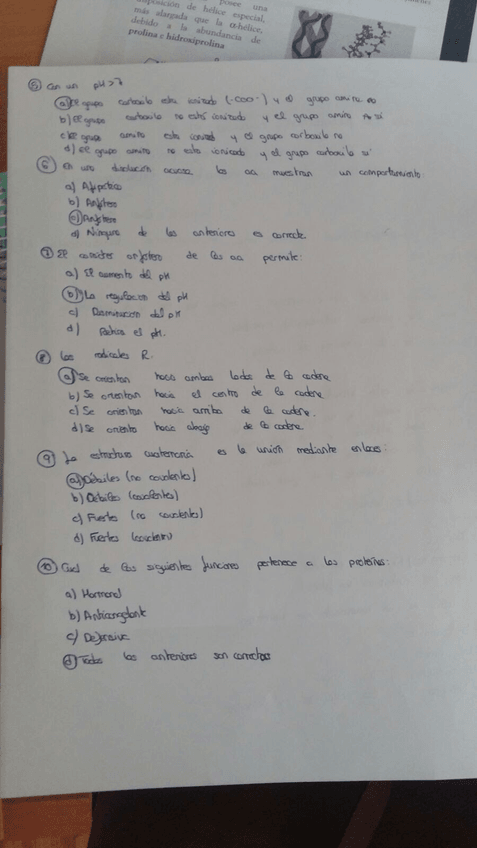 posee una
disposición de hélice especial,
más alargada que la α-hélice,
debido a la abundancia de
prolina e hidroxiprolina
5) Con un pH>7
a) El grupo carboxilo esta ionizado (-COO-) y el grupo amino no
b) El grupo carboxilo no está ionizado y el grupo amino si
c) El grupo amino esta ionizado y el grupo carboxilo no
d) El grupo amino no esta ionizado y el grupo carboxilo si
6) En una disolución acuosa los aa muestran un comportamiento:
a)
b)
c) Anfótero
d) Ninguna de las anteriores es correcta
7) El carácter anfótero de los aa permite:
a) El aumento del pH
b) La regulación del pH
c) Disminución del pH
d) el pH.
8) Los radicales R.
a) Se orientan hacia ambos lados de la cadena
b) Se orientan hacia el centro de la cadena
c) Se orientan hacia arriba de la cadena.
d) Se orienta hacia abajo de la cadena
9) La estructura cuaternaria es la unión mediante enlaces:
a) Débiles (no covalentes)
b) Débiles (covalentes)
c) Fuertes (no covalentes)
d) Fuertes (covalentes)
10) Cual de las siguientes funciones pertenece a las proteínas:
a) Hormonal
b) Anticongelante
c) Defensiva
d) Todas las anteriores son correctas